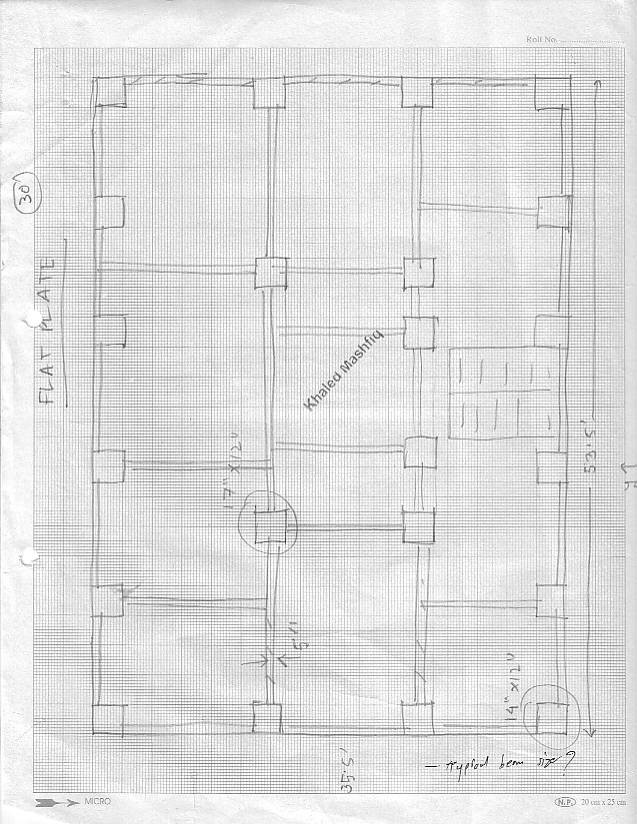 Roll No.
30'
FLAT PLATE
Khaled Mashfiq
17" X 12"
53.5'
5"
14" X 12"
35.5'
- typical beam size?
MICRO
N.P. 20 cm x 25 cm